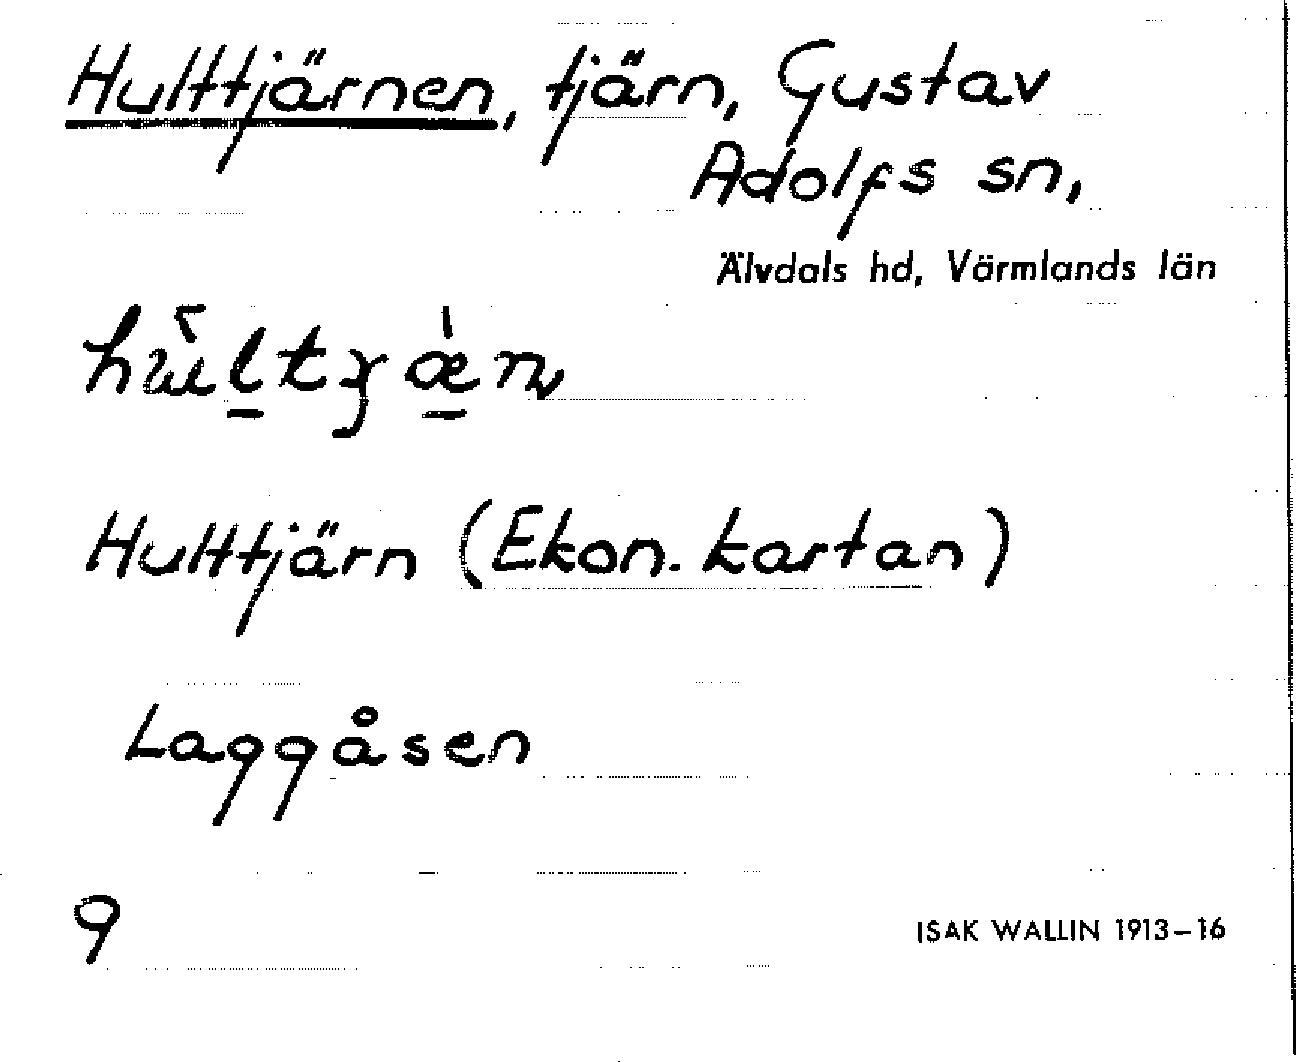 Hulttjärnen, tjärn, Gustav
Adolfs sn,
Älvdals hd, Värmlands län
Hulttjärn (Ekon. kartan)
Laggåsen
9
ISAK WALLIN 1913–16